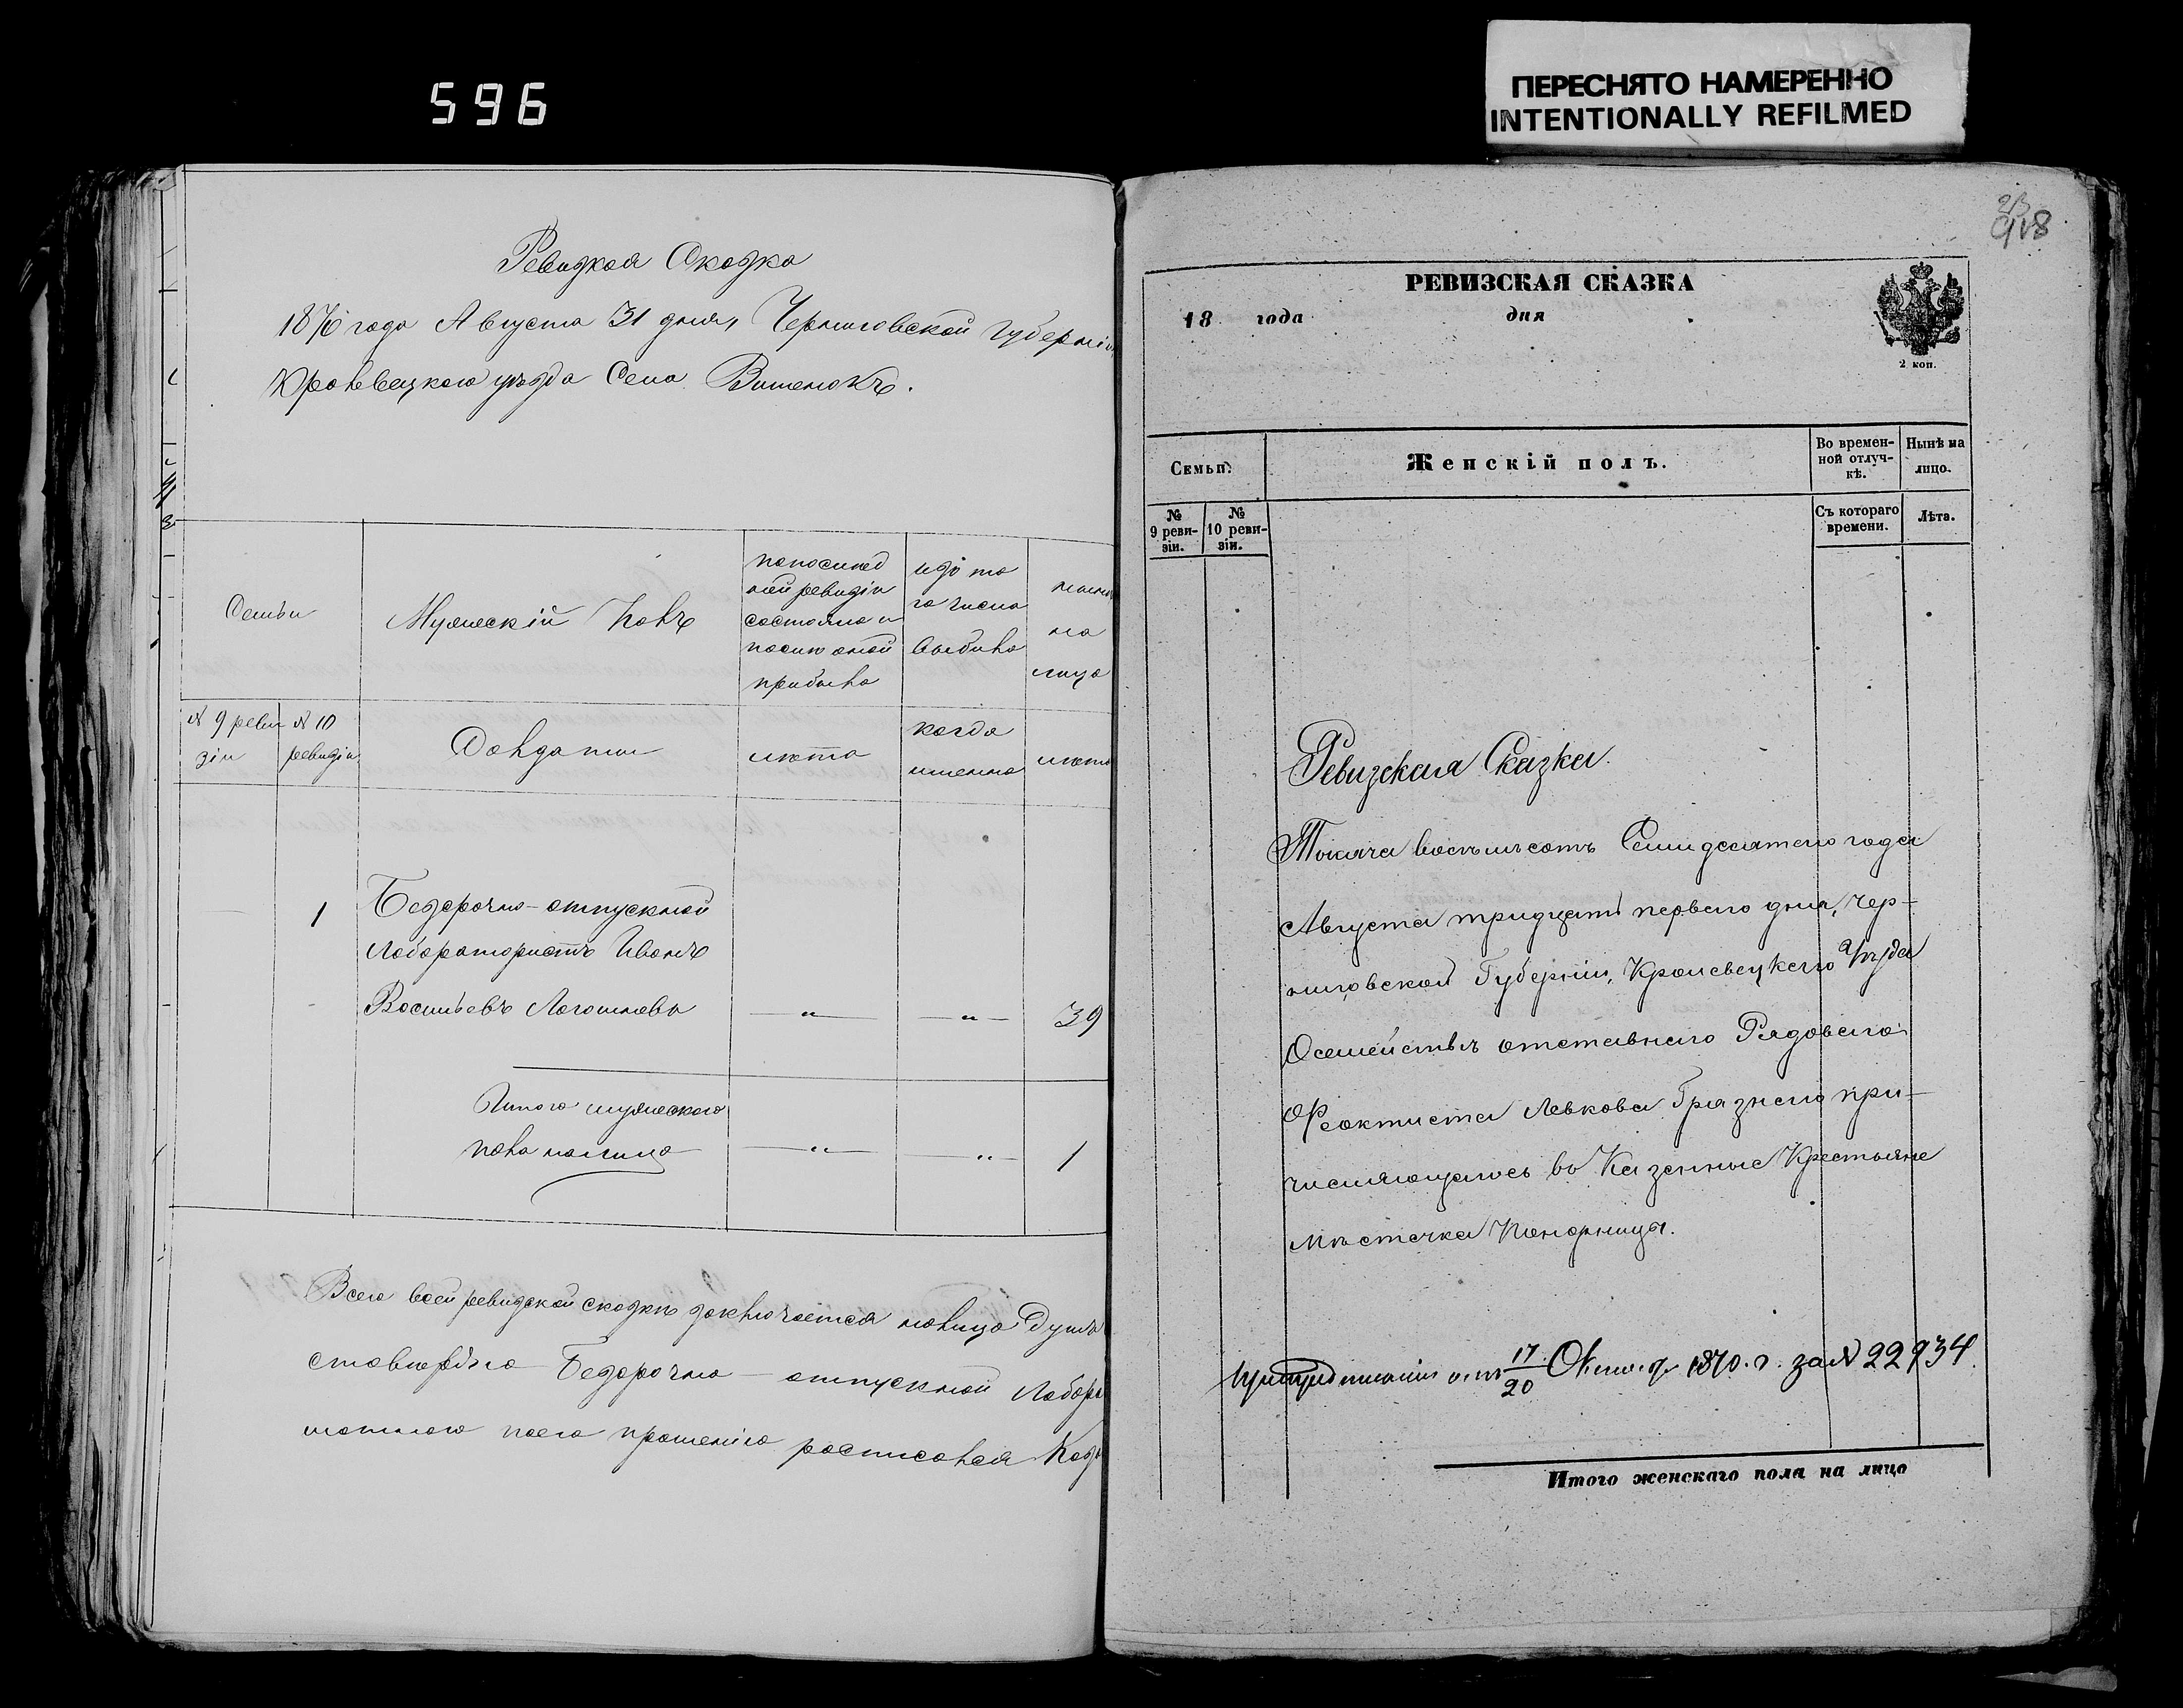 596
ПЕРЕСНЯТО НАМЕРЕННО
INTENTIONALLY REFILMED
Ревизкая Сказка
1870 года Августа 31 дня, Черниговской Губерніи
Кролевецкого уѣзда Села Вишенокъ.
Семьи
Мужескій Полъ
по послѣд
ней ревизіи
состояло и
послѣ оной
прибыло
изъ то
го числа
выбыло
ныне
на
лицо
№ 9 реви
зіи
№ 10
ревизіи
Солдаты
лѣта
когда
именно
лѣта
1 Безсрочно-отпускной
Лаборатористъ Иванъ
Васильевъ Логоиновъ — „ — — „ — 39
Итого мужеского
пола налицо — „ — — „ — 1
Всего всей ревизской сказкѣ заключается налицо Душъ
Безсрочно — отпускной Лабора
прошенію росписался
918
РЕВИЗСКАЯ СКАЗКА
18 года дня
2 коп.
Семьи.
Женскій полъ.
Во времен-
ной отлуч-
кѣ.
Нынѣ на
лицо.
№
9 реви-
зіи.
№
10 реви-
зіи.
Съ котораго
времени.
Лѣта.
Ревизская Сказка.
Тысяча восемьсотъ Семидесятаго года
Августа тридцать перваго дня, Чер-
ниговской Губерніи, Кролевецкаго Уѣзда
О семействѣ отставнаго Рядоваго
Феоктиста Левкова Грязнаго при-
числяющагось въ Казенные Крестьяне
мѣстечка Понорница.
17/20 1870. г. за № 22934.
Итого женскаго пола на лицо